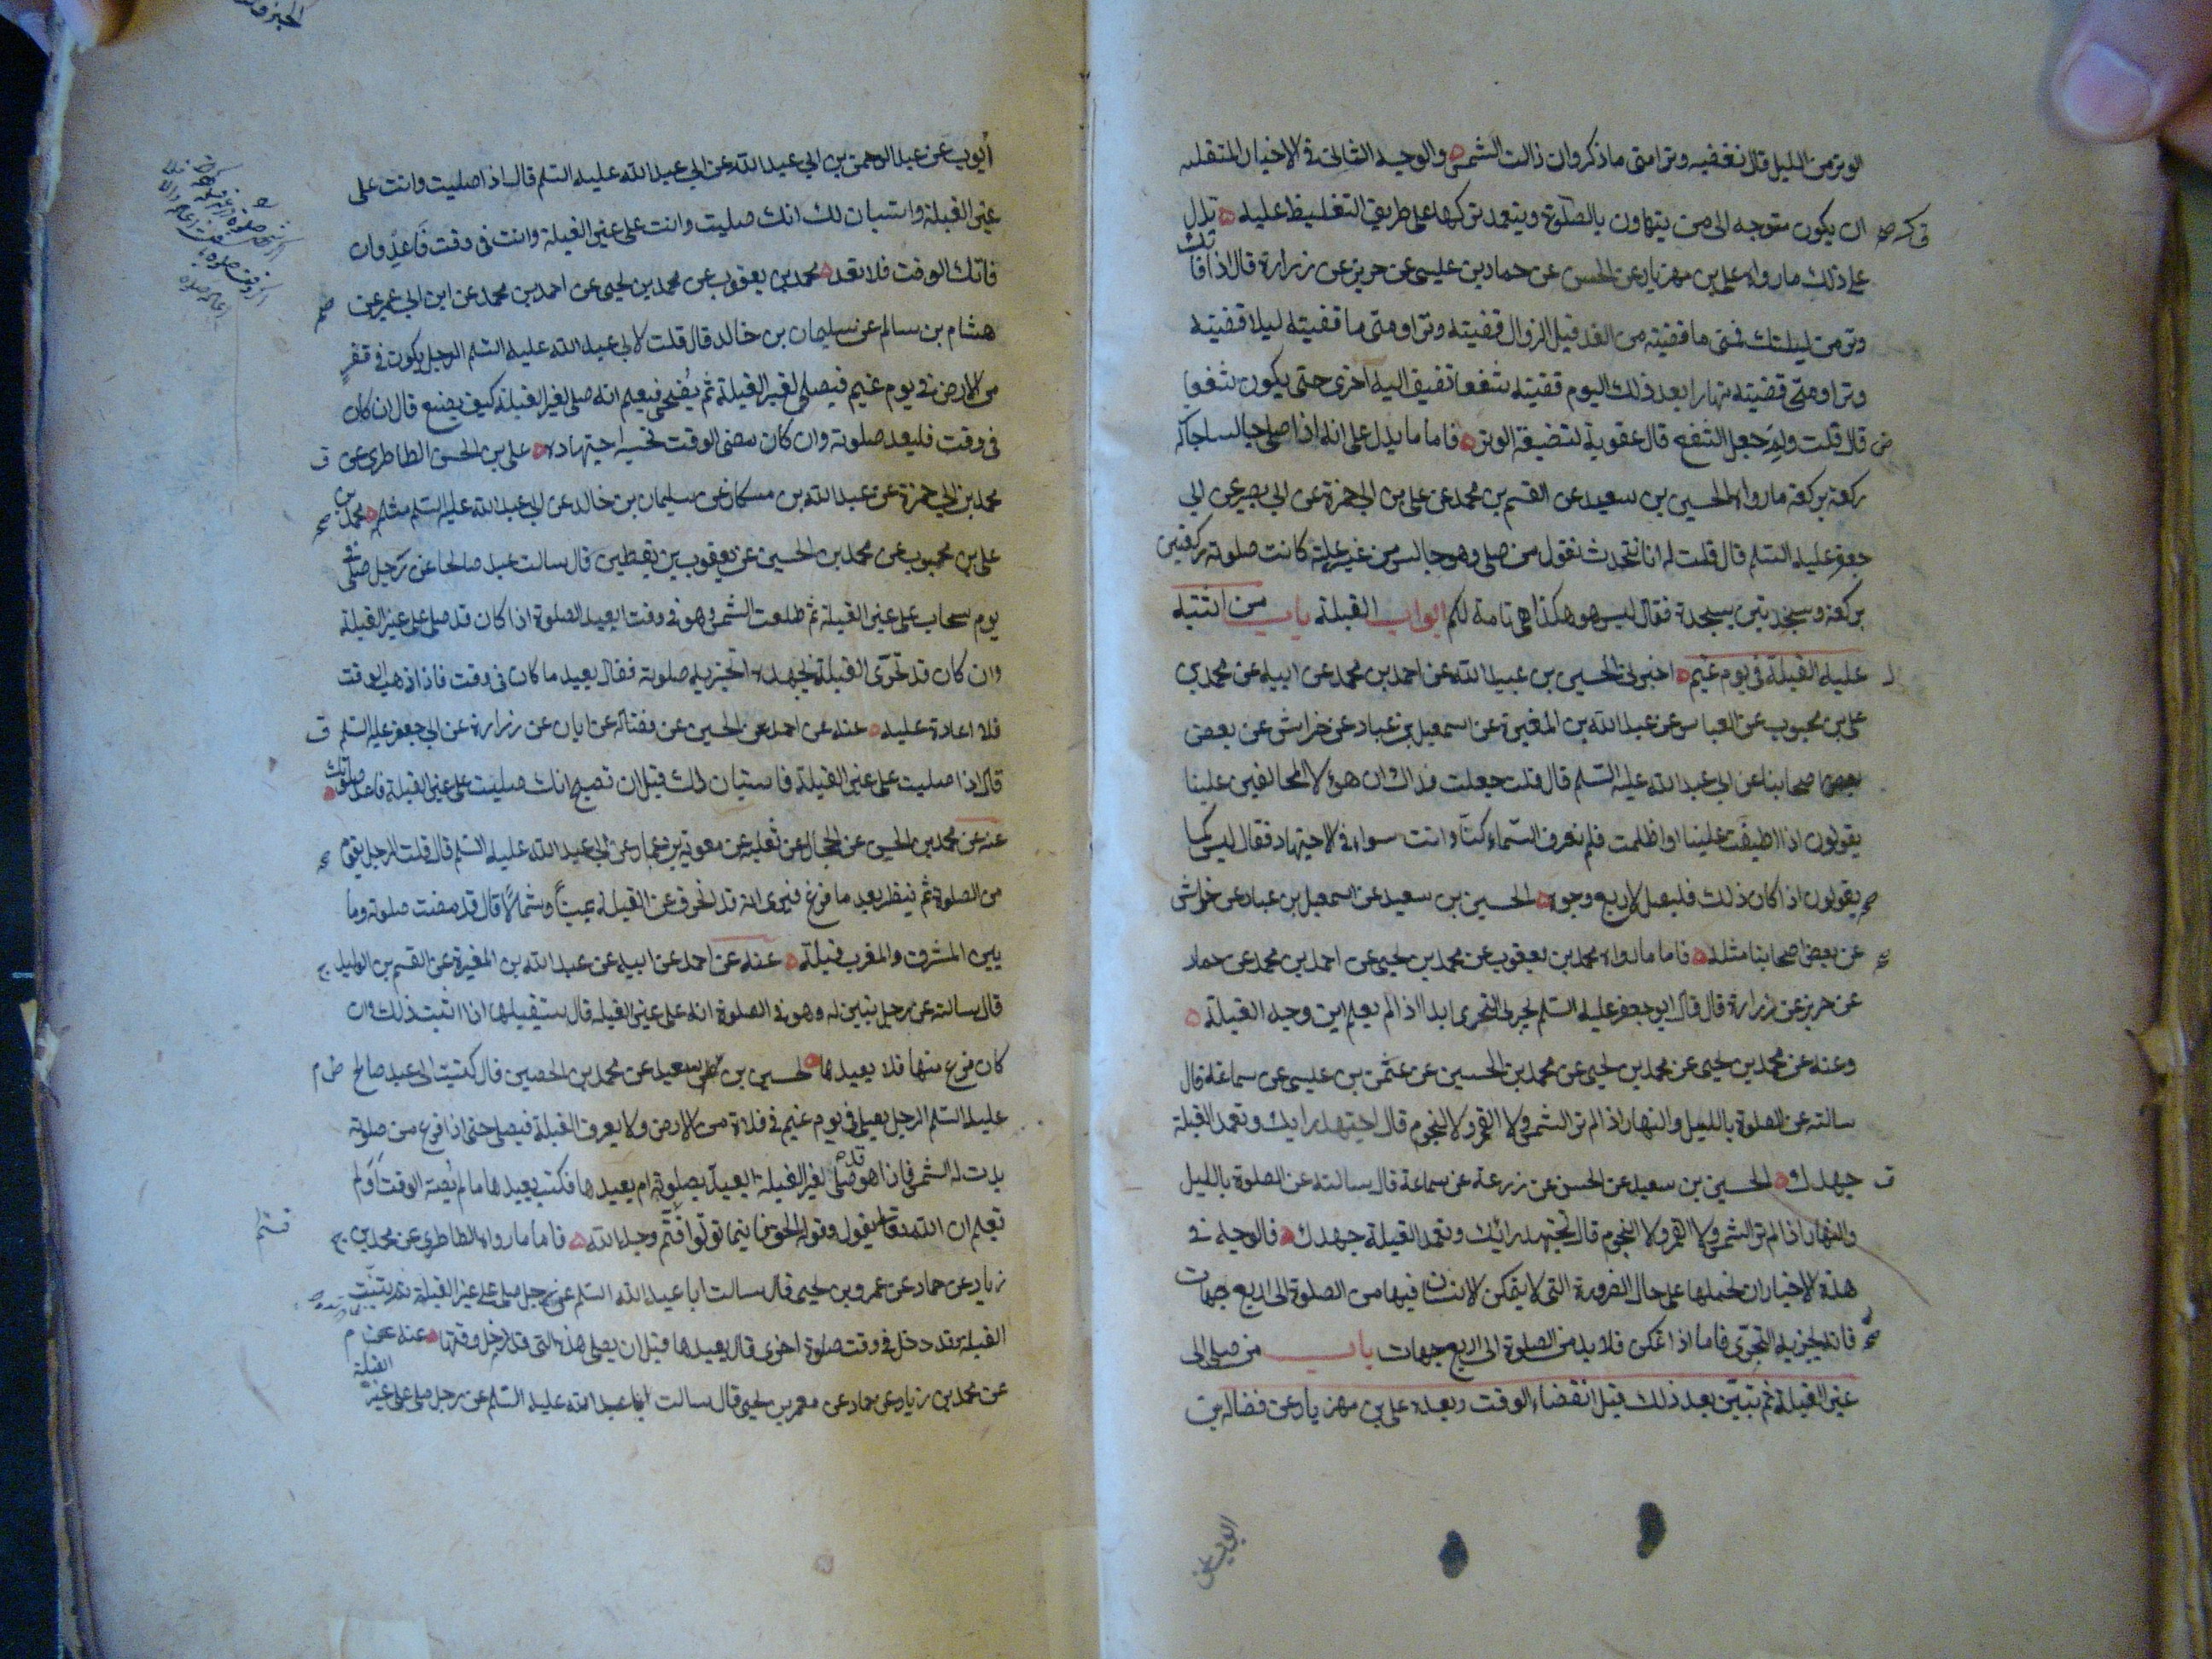 الوتر من الليل قال نقضيه وترا متى ما ذكر وان زالت الشمس والوجه الثانى فى الاخبار المتقدمه
ان يكون متوجه الى من يتهاون بالصلوة ويتعمد تركها على طريق التغليظ عليه يدل
على ذلك ما رواه على بن مهزيار عن الحسن عن حماد بن عيسى عن حريز عن زرارة قال اذا فاتك
وتر من ليلتك فمتى ما قضيته من الغد قبل الزوال قضيته وترا ومتى ما قضيته ليلا قضيته
وترا ومتى قضيته نهارا بعد ذلك اليوم قضيته شفعا تضيف اليه اخرى حتى يكون شفعا
قال قلت ولم جعل الشفع قال عقوبة لتضييقه الوتر فاما ما يدل على انه اذا صلى جالسا جاكه
ركعة بركعة ما رواه الحسين بن سعيد عن القسم بن محمد عن على بن ابى حمزة عن ابى بصير عن ابى
جعفر عليه السلم قال قلت له انا نتحدث نقول من صلى وهو جالس من غير علة كانت صلوته ركعتين
بركعة وسجدتين بسجدة فقال ليس هو هكذا هى تامة لكم ابواب القبلة باب من اشتبه
عليه القبلة فى يوم غيم اخبرنى الحسين بن عبيد الله عن احمد بن محمد عن ابيه عن محمد بن
على بن محبوب عن العباس عن عبد الله بن المغيرة عن اسمعيل بن عباد عن خراش عن بعض
اصحابنا عن ابى عبد الله عليه السلم قال قلت جعلت فداك ان هؤلا المخالفين علينا
يقولون اذا اطبقت علينا او اظلمت فلم نعرف السماء كنا وانتم سواء فى الاجتهاد فقال ليس كما
يقولون اذا كان ذلك فليصل لاربع وجوه الحسين بن سعيد عن اسمعيل بن عباد عن خراش
عن بعض اصحابنا مثله فاما ما رواه محمد بن يعقوب عن محمد بن يحيى عن احمد بن محمد عن حماد
عن حريز عن زرارة قال قال ابو جعفر عليه السلم يجزى التحرى ابدا اذا لم يعلم اين وجه القبلة
وعنه عن محمد بن يحيى عن محمد بن الحسين عن عثمن بن عيسى عن سماعة قال
سالته عن الصلوة بالليل والنهار اذا لم تر الشمس ولا القمر ولا النجوم قال اجتهد رايك وتعمد القبلة
جهدك الحسين بن سعيد عن الحسن عن زرعة عن سماعة قال سالته عن الصلوة بالليل
والنهار اذا لم تر الشمس ولا القمر ولا النجوم قال تجتهد رائك وتعمد القبلة جهدك فالوجه فى
هذه الاخبار ان نحملها على حال الضرورة التى لا يتمكن الانسان فيها من الصلوة الى اربع جهات
فانه يجزيه التحرى فاما اذا تمكن فلا بد من الصلوة الى اربع جهات باب من صلى الى
غير القبلة ثم تبين بعد ذلك قبل انقضاء الوقت وبعده على بن مهزيار عن فضالة بن
ايوب عن عبد الرحمن بن ابى عبد الله عن ابى عبد الله عليه السلم قال اذا صليت وانت على
غير القبلة واستبان لك انك صليت وانت على غير القبلة وانت فى وقت فاعد وان
فاتك الوقت فلا تعد محمد بن يعقوب عن محمد بن يحيى عن احمد بن محمد عن ابن ابى عمير عن
هشام بن سالم عن سليمان بن خالد قال قلت لابى عبد الله عليه السلم الرجل يكون فى قفر
من الارض فى يوم غيم فيصلى لغير القبلة ثم يضحى فيعلم انه صلى لغير القبلة كيف يصنع قال ان كان
فى وقت فليعد صلوته وان كان مضى الوقت فحسبه اجتهاده على بن الحسن الطاطرى عن
محمد بن ابى حمزة عن عبد الله بن مسكان عن سليمان بن خالد عن ابى عبد الله عليه السلم مثله محمد بن
على بن محبوب عن محمد بن الحسين عن يعقوب بن يقطين قال سالت عبدا صالحا عن رجل صلى فى
يوم سحاب على غير القبلة ثم طلعت الشمس وهو فى وقت ايعيد الصلوة اذا كان قد صلى على غير القبلة
وان كان قد تحرى القبلة بجهده اتجزيه صلوته فقال يعيد ما كان فى وقت فاذا ذهب الوقت
فلا اعادة عليه عنه عن احمد عن الحسين عن فضالة عن ابان عن زرارة عن ابى جعفر عليه السلم
قال اذا صليت على غير القبلة فاستبان لك قبل ان تصبح انك صليت على غير القبلة فاعد صلوتك
عنه عن محمد بن الحسين عن الحجال عن ثعلبة عن معوية بن عمار عن ابى عبد الله عليه السلم قال قلت الرجل يقوم
من الصلوة ثم ينظر بعد ما فرغ فيرى انه قد انحرف عن القبلة يمينا وشمالا قال قد مضت صلوته وما
بين المشرق والمغرب قبلة عنه عن احمد عن ابيه عن عبد الله بن المغيرة عن القسم بن الوليد
قال سالته عن رجل تبين له وهو فى الصلوة انه على غير القبلة قال يستقبلها اذا اثبت ذلك وان
كان فرغ منها فلا يعيدها الحسين بن سعيد عن محمد بن الحصين قال كتبت الى عبد صالح
عليه السلم الرجل يصلى فى يوم غيم فى فلاة من الارض ولا يعرف القبلة فيصلى حتى اذا فرغ من صلوته
بدت له الشمس فاذا هو قد صلى لغير القبلة ايعيد بصلوته ام يعيدها فكتب يعيدها ما لم يفته الوقت اولم
تعلم ان الله تعالى يقول وقوله الحق فاينما تولوا فثم وجه الله فاما ما رواه الطاطرى عن محمد بن
زياد عن حماد عن عمرو بن يحيى قال سالت ابا عبد الله السلم عن رجل صلى على غير القبلة ثم تبينت
القبلة وقد دخل فى وقت صلوة اخرى قال يعيدها قبل ان يصلى هذه التى قد دخل وقتها عنه عن
عن محمد بن زياد عن حماد عن معمر بن يحيى قال سالت ابا عبد الله عليه السلم عن رجل صلى على غير القبلة